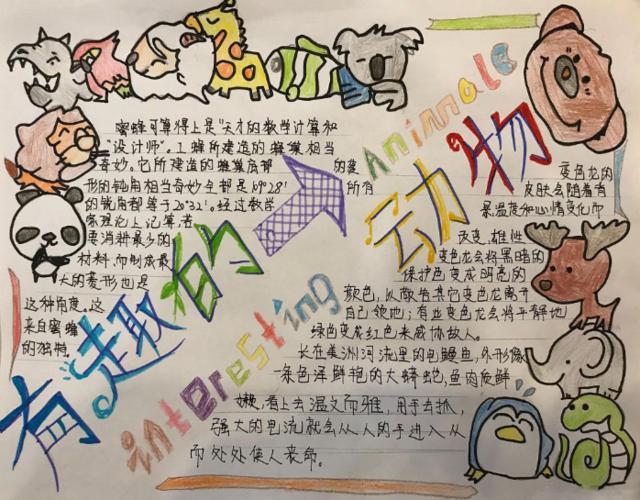 有趣的动物
interesting
Animals
蜜蜂可算得上是“天才的数学计算和
“设计师”。工蜂所建造的蜂巢相当
奇妙。它所建造的蜂巢底部的菱
形的钝角相当奇妙全都是109°28′所有
的锐角都等于70°32′。经过数学
家理论上记算,若
要消种最少的
材料,而制成最
大的菱形也是
这种角度。这
来自蜜蜂
的独特。
变色龙的
皮肤会随着有
温度和心情变化而
改变,雄性
变色龙会将黑暗的
保护色变成明亮的
颜色,以敬告其它变色龙离开
自己领地;有些变色龙会将平静地
绿色变成红色来威协敌人。
长在美洲河流里的电鳗鱼,外形像
一条色泽鲜艳的大蟒蛇,鱼肉质鲜
嫩,看上去温文而雅,用手去抓,
强大的电流就会从人的手进入从
而处处使人丧命。